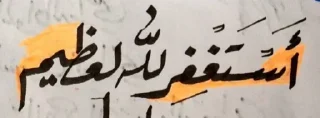 أَسْتَغْفِرُ للّٰه لعظيم